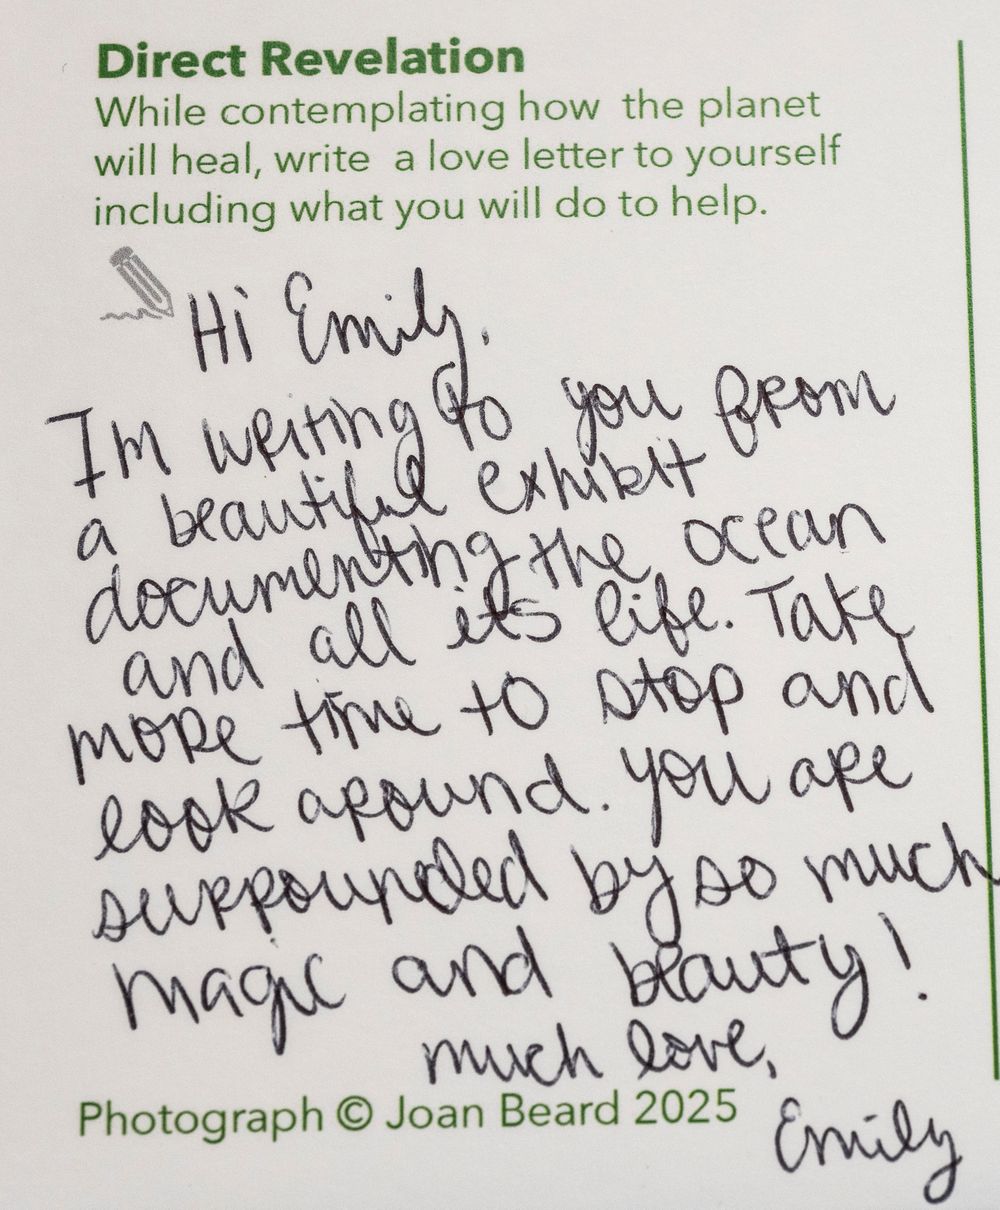 Direct Revelation
While contemplating how the planet
will heal, write a love letter to yourself
including what you will do to help.
Hi Emily,
I'm writing to you from
a beautiful exhibit
documenting the ocean
and all its life. Take
more time to stop and
look around. You are
surrounded by so much
magic and beauty!
much love,
Photograph © Joan Beard 2025
Emily